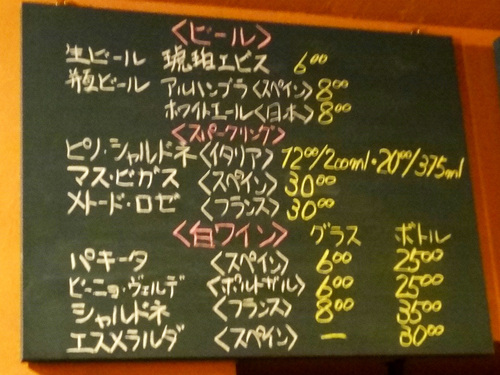 〈ビール〉
生ビール 琥珀エビス 6⁰⁰
瓶ビール アルハンブラ〈スペイン〉8⁰⁰
ホワイトエール〈日本〉8⁰⁰
〈スパークリング〉
ピノ・シャルドネ〈イタリア〉12⁰⁰/200ml・20⁰⁰/375ml
マス・ビガス〈スペイン〉30⁰⁰
メトード・ロゼ〈フランス〉30⁰⁰
〈白ワイン〉 グラス ボトル
パキータ〈スペイン〉6⁰⁰ 25⁰⁰
ビーニョ・ヴェルデ〈ポルトガル〉6⁰⁰ 25⁰⁰
シャルドネ〈フランス〉8⁰⁰ 35⁰⁰
エスメラルダ〈スペイン〉— 30⁰⁰